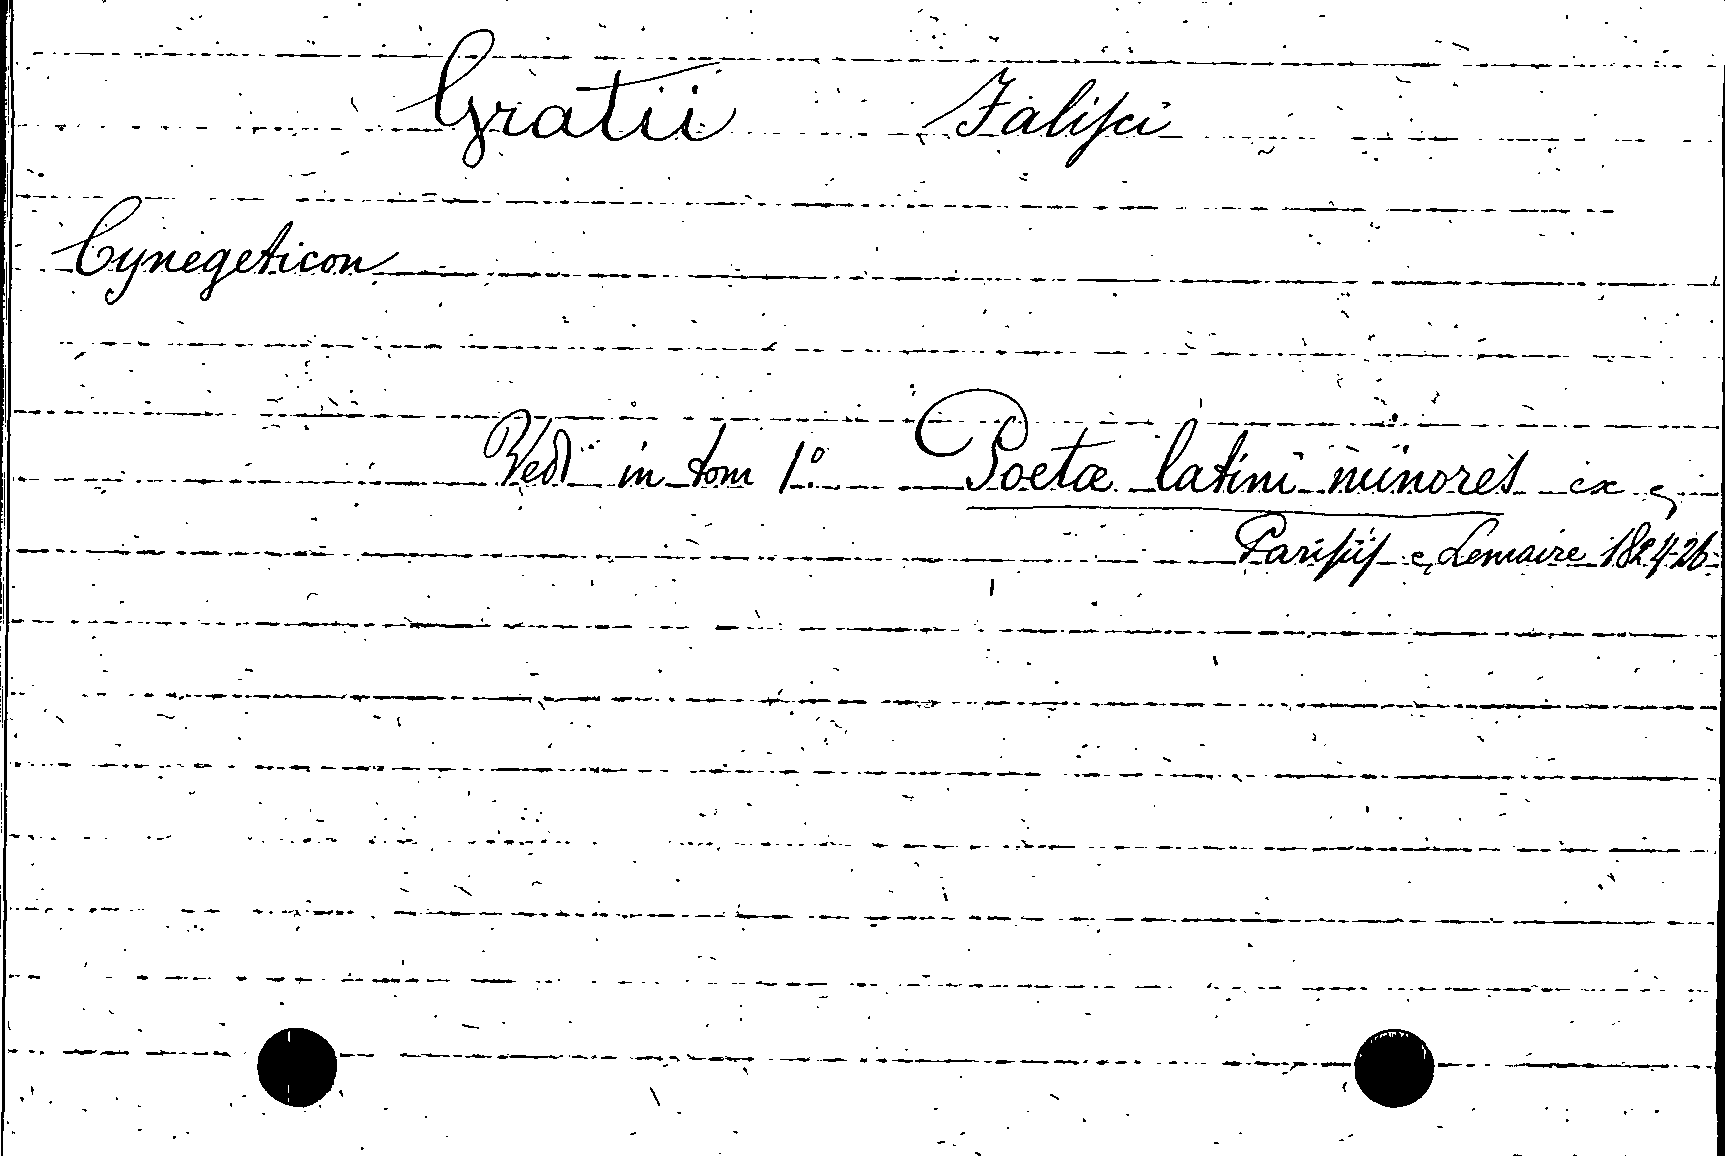 Gratii Faliſci
Cynegeticon
Vedi in tom 1º Poetæ latini minores ex
Pariſiiſ e, Lemaire 1824-26